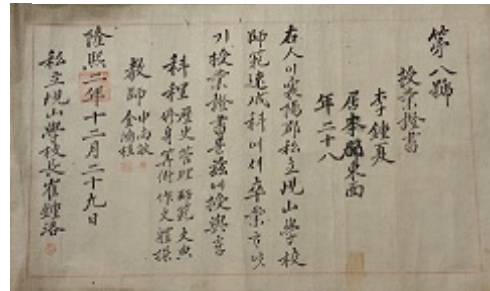 第八號
授業證書
李鍾夏
居本郡東面
年二十八
右人이襄陽郡私立峴山學校
師範速成科에서卒業하얏
기授業證書를玆에授與홈
科程 歷史 管理 師範 文典
修身 算術 作文 體操
教師
金鴻程
隆熙二年十二月二十九日
私立峴山學校長崔鍾洛